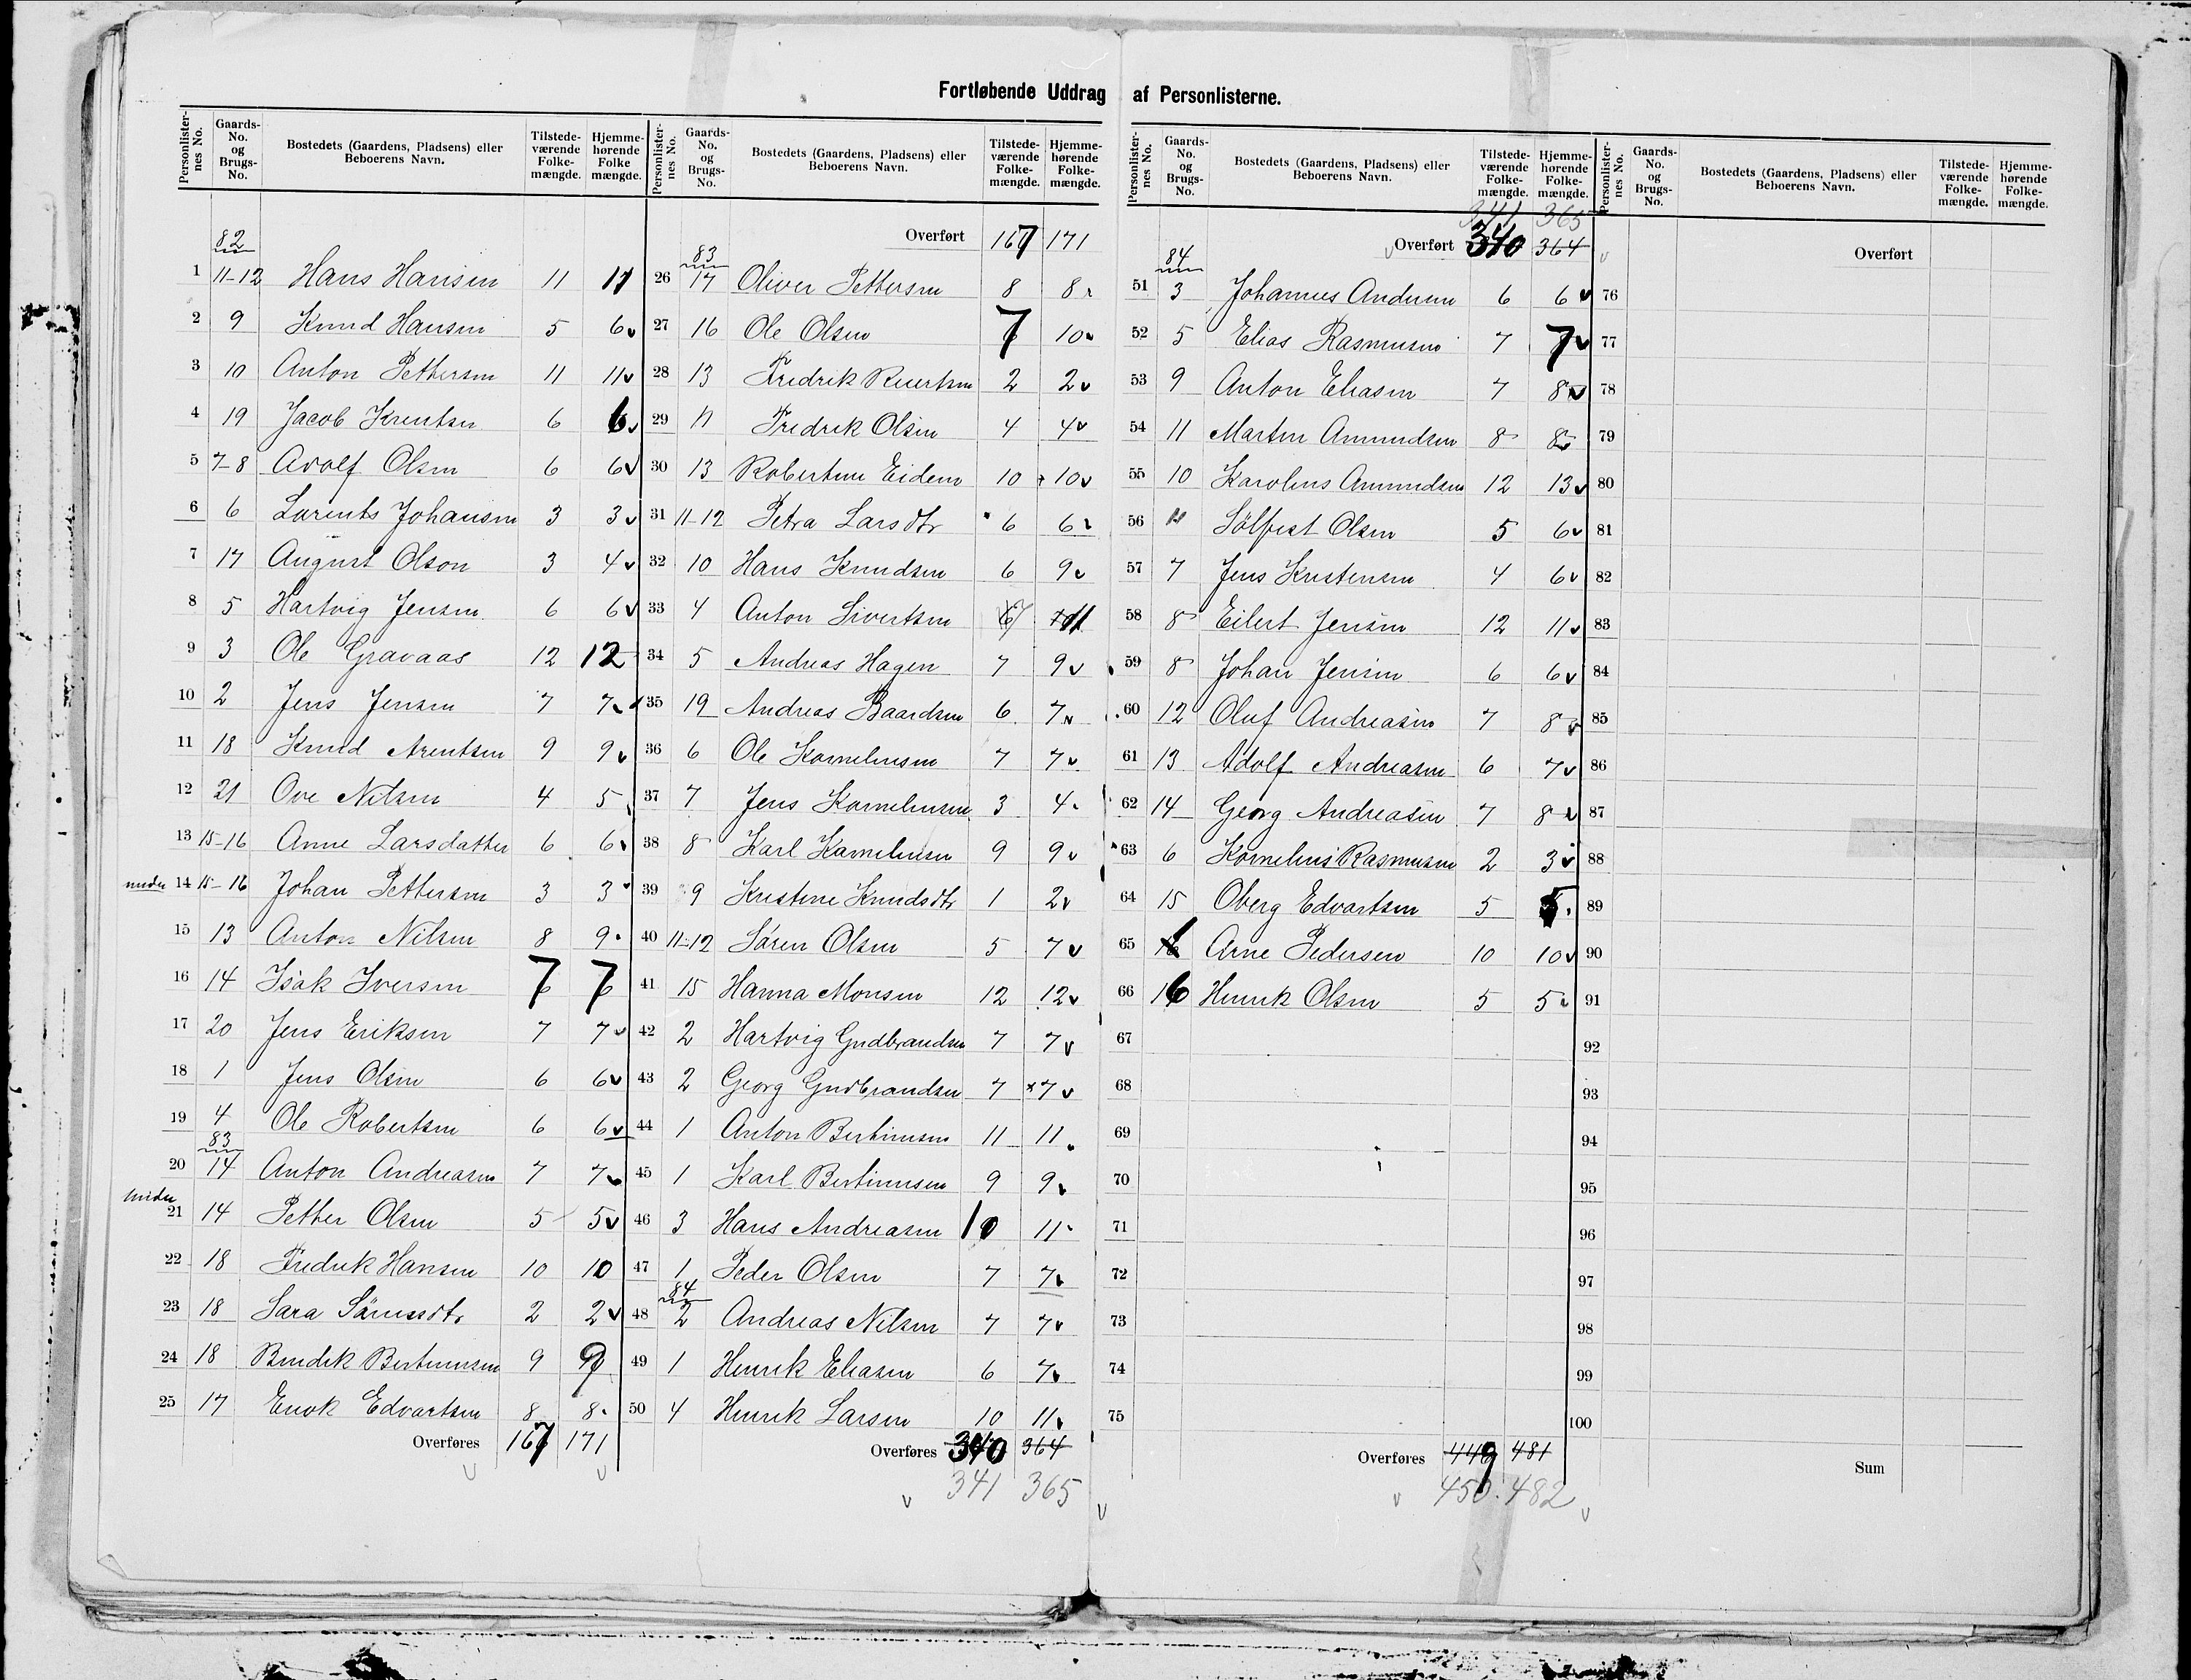 Fortløbende Uddrag af Personlisterne.
Personlisternes No. Gaards-No. og Brugs-No. Bostedets (Gaardens, Pladsens) eller Beboerens Navn. Tilstedeværende Folkemængde. Hjemmehørende Folke mængde.
82
1 11-12 Hans Hansen 11 11
2 9 Knud Hansen 5 6
3 10 Anton Pettersen 11 11
4 19 Jacob Krentsen 6 6
5 7-8 Adolf Olsen 6 6
6 6 Lorents Johansen 3 3
7 17 August Olson 3 4
8 5 Hartvig Jensen 6 6
9 3 Ole Gravaas 12 12
10 2 Jens Jensen 7 7
11 18 Knud Arentsen 9 9
12 21 Ove Nilsen 4 5
13 15-16 Anne Larsdatter 6 6
14 15-16 Johan Pettersen 3 3
15 13 Anton Nilsen 8 9
16 14 Isak Iversen 7 7
17 20 Jens Eriksen 7 7
18 1 Jens Olsen 6 6
19 4 Ole Robertsen 6 6
83
20 14 Anton Andreasen 7 7
21 14 Petter Olsen 5 5
22 18 Fredrik Hansen 10 10
23 18 Sara Sörensdtr 2 2
24 18 Bendik Bertinussen 9 9
25 17 Enok Edvartsen 8 8
Overføres 167 171
Personlisternes No. Gaards-No. og Brugs-No. Bostedets (Gaardens, Pladsens) eller Beboerens Navn. Tilstedeværende Folkemængde. Hjemmehørende Folkemængde.
Overført 167 171
83
26 17 Oliver Pettersen 8 8
27 16 Ole Olsen 7 10
28 13 Fredrik 2 2
29 11 Fredrik Olsen 4 4
30 13 Robertine Eidem 10 10
31 11-12 Petra Larsdtr 6 6
32 10 Hans Knudsen 6 9
33 4 Anton Sivertsen 7 11
34 5 Andreas Hagen 7 9
35 19 Andreas Baardsen 6 7
36 6 Ole Kornelinsen 7 7
37 7 Jens Kornelinsen 3 4
38 8 Karl Kornelinsen 9 9
39 9 Kristine Knudsdtr 1 2
40 11-12 Søren Olsen 5 7
41 15 Hanna Monsen 12 12
42 2 Hartvig Gudbrandsen 7 7
43 2 Georg Gudbrandsen 7 7
44 1 Anton Bertinusen 11 11
45 1 Karl Bertinusen 9 9
46 3 Hans Andreasen 10 11
47 1 Peder Olsen 7 7
84
48 2 Andreas Nilsen 7 7
49 1 Henrik Eliasen 6 7
50 4 Henrik Larsen 10 11
Overføres 340 364
341 365
Personlisternes No. Gaards-No. og Brugs-No. Bostedets (Gaardens, Pladsens) eller Beboerens Navn. Tilstedeværende Folkemængde. Hjemmehørende Folkemængde.
341 365
Overført 340 364
84
51 3 Johannes Andersen 6 6
52 5 Elias Rasmusen 7 7
53 9 Anton Eliasen 7 8
54 11 Martin Amundsen 8 8
55 10 Karolius Amundsen 12 13
56 Sölfest Olsen 5 6
57 7 Jens Kristensen 4 6
58 8 Eilert Jensen 12 11
59 8 Johan Jensen 6 6
60 12 Oluf Andreasen 7 8
61 13 Adolf Andreasen 6 7
62 14 Georg Andreasen 7 8
63 6 Kornelius Rasmusen 2 3
64 15 Oberg Edvartsen 5 5
65 Arne Pedersen 10 10
66 16 Henrik Olsen 5 5
67
68
69
70
71
72
73
74
75
Overføres 449 481
450 482
Personlisternes No. Gaards-No. og Brugs-No. Bostedets (Gaardens, Pladsens) eller Beboerens Navn. Tilstedeværende Folkemængde. Hjemmehørende Folkemængde.
Overført
76
77
78
79
80
81
82
83
84
85
86
87
88
89
90
91
92
93
94
95
96
97
98
99
100
Sum